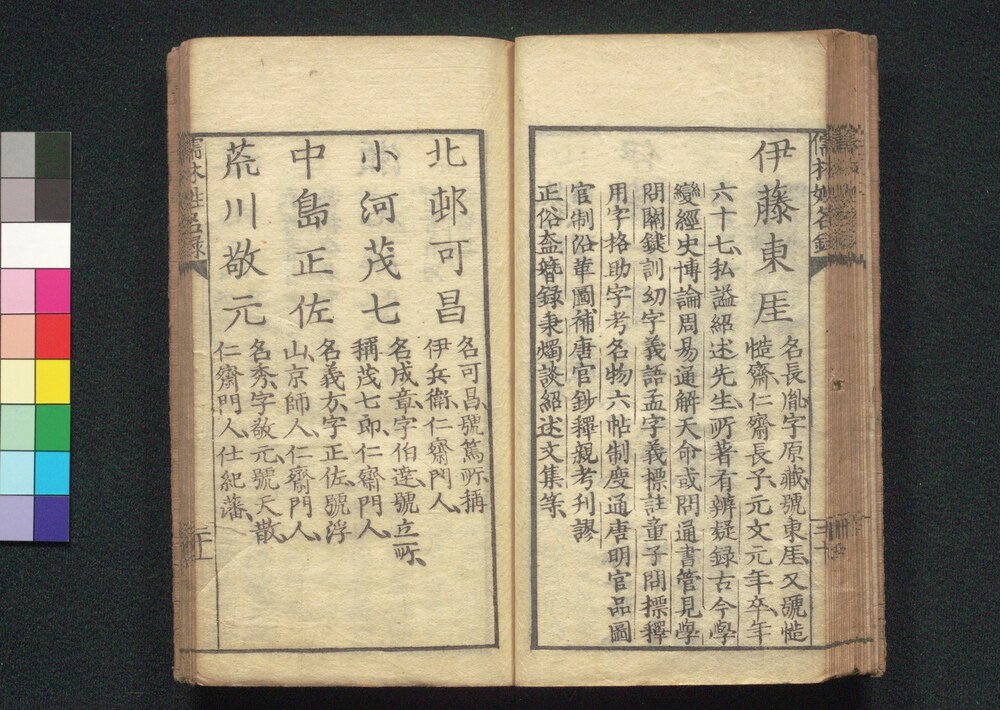 伊藤東厓
名長胤字原藏號東厓又號慥
慥齋仁齋長子元文元年卒年
六十七私謚紹述先生所著有辨疑録古今學
變經史博論周易通解天命或問通書管見學
問關鍵訓幼字義語孟字義標註童子問標釋
用字格助字考名物六帖制度通唐明官品圖
官制沿革圖補唐官鈔釋親考刊謬
正俗盍簪録秉燭談紹述文集等
儒林姓名録
北邨可昌
名可昌號篤所稱
伊兵衛仁齋門人
小河茂七
名成章字伯達號立所
稱茂七郎仁齋門人
中島正佐
名義方字正佐號浮
山京師人仁齋門人
荒川敬元
名秀字敬元號天散
仁齋門人仕紀藩
儒林姓名録